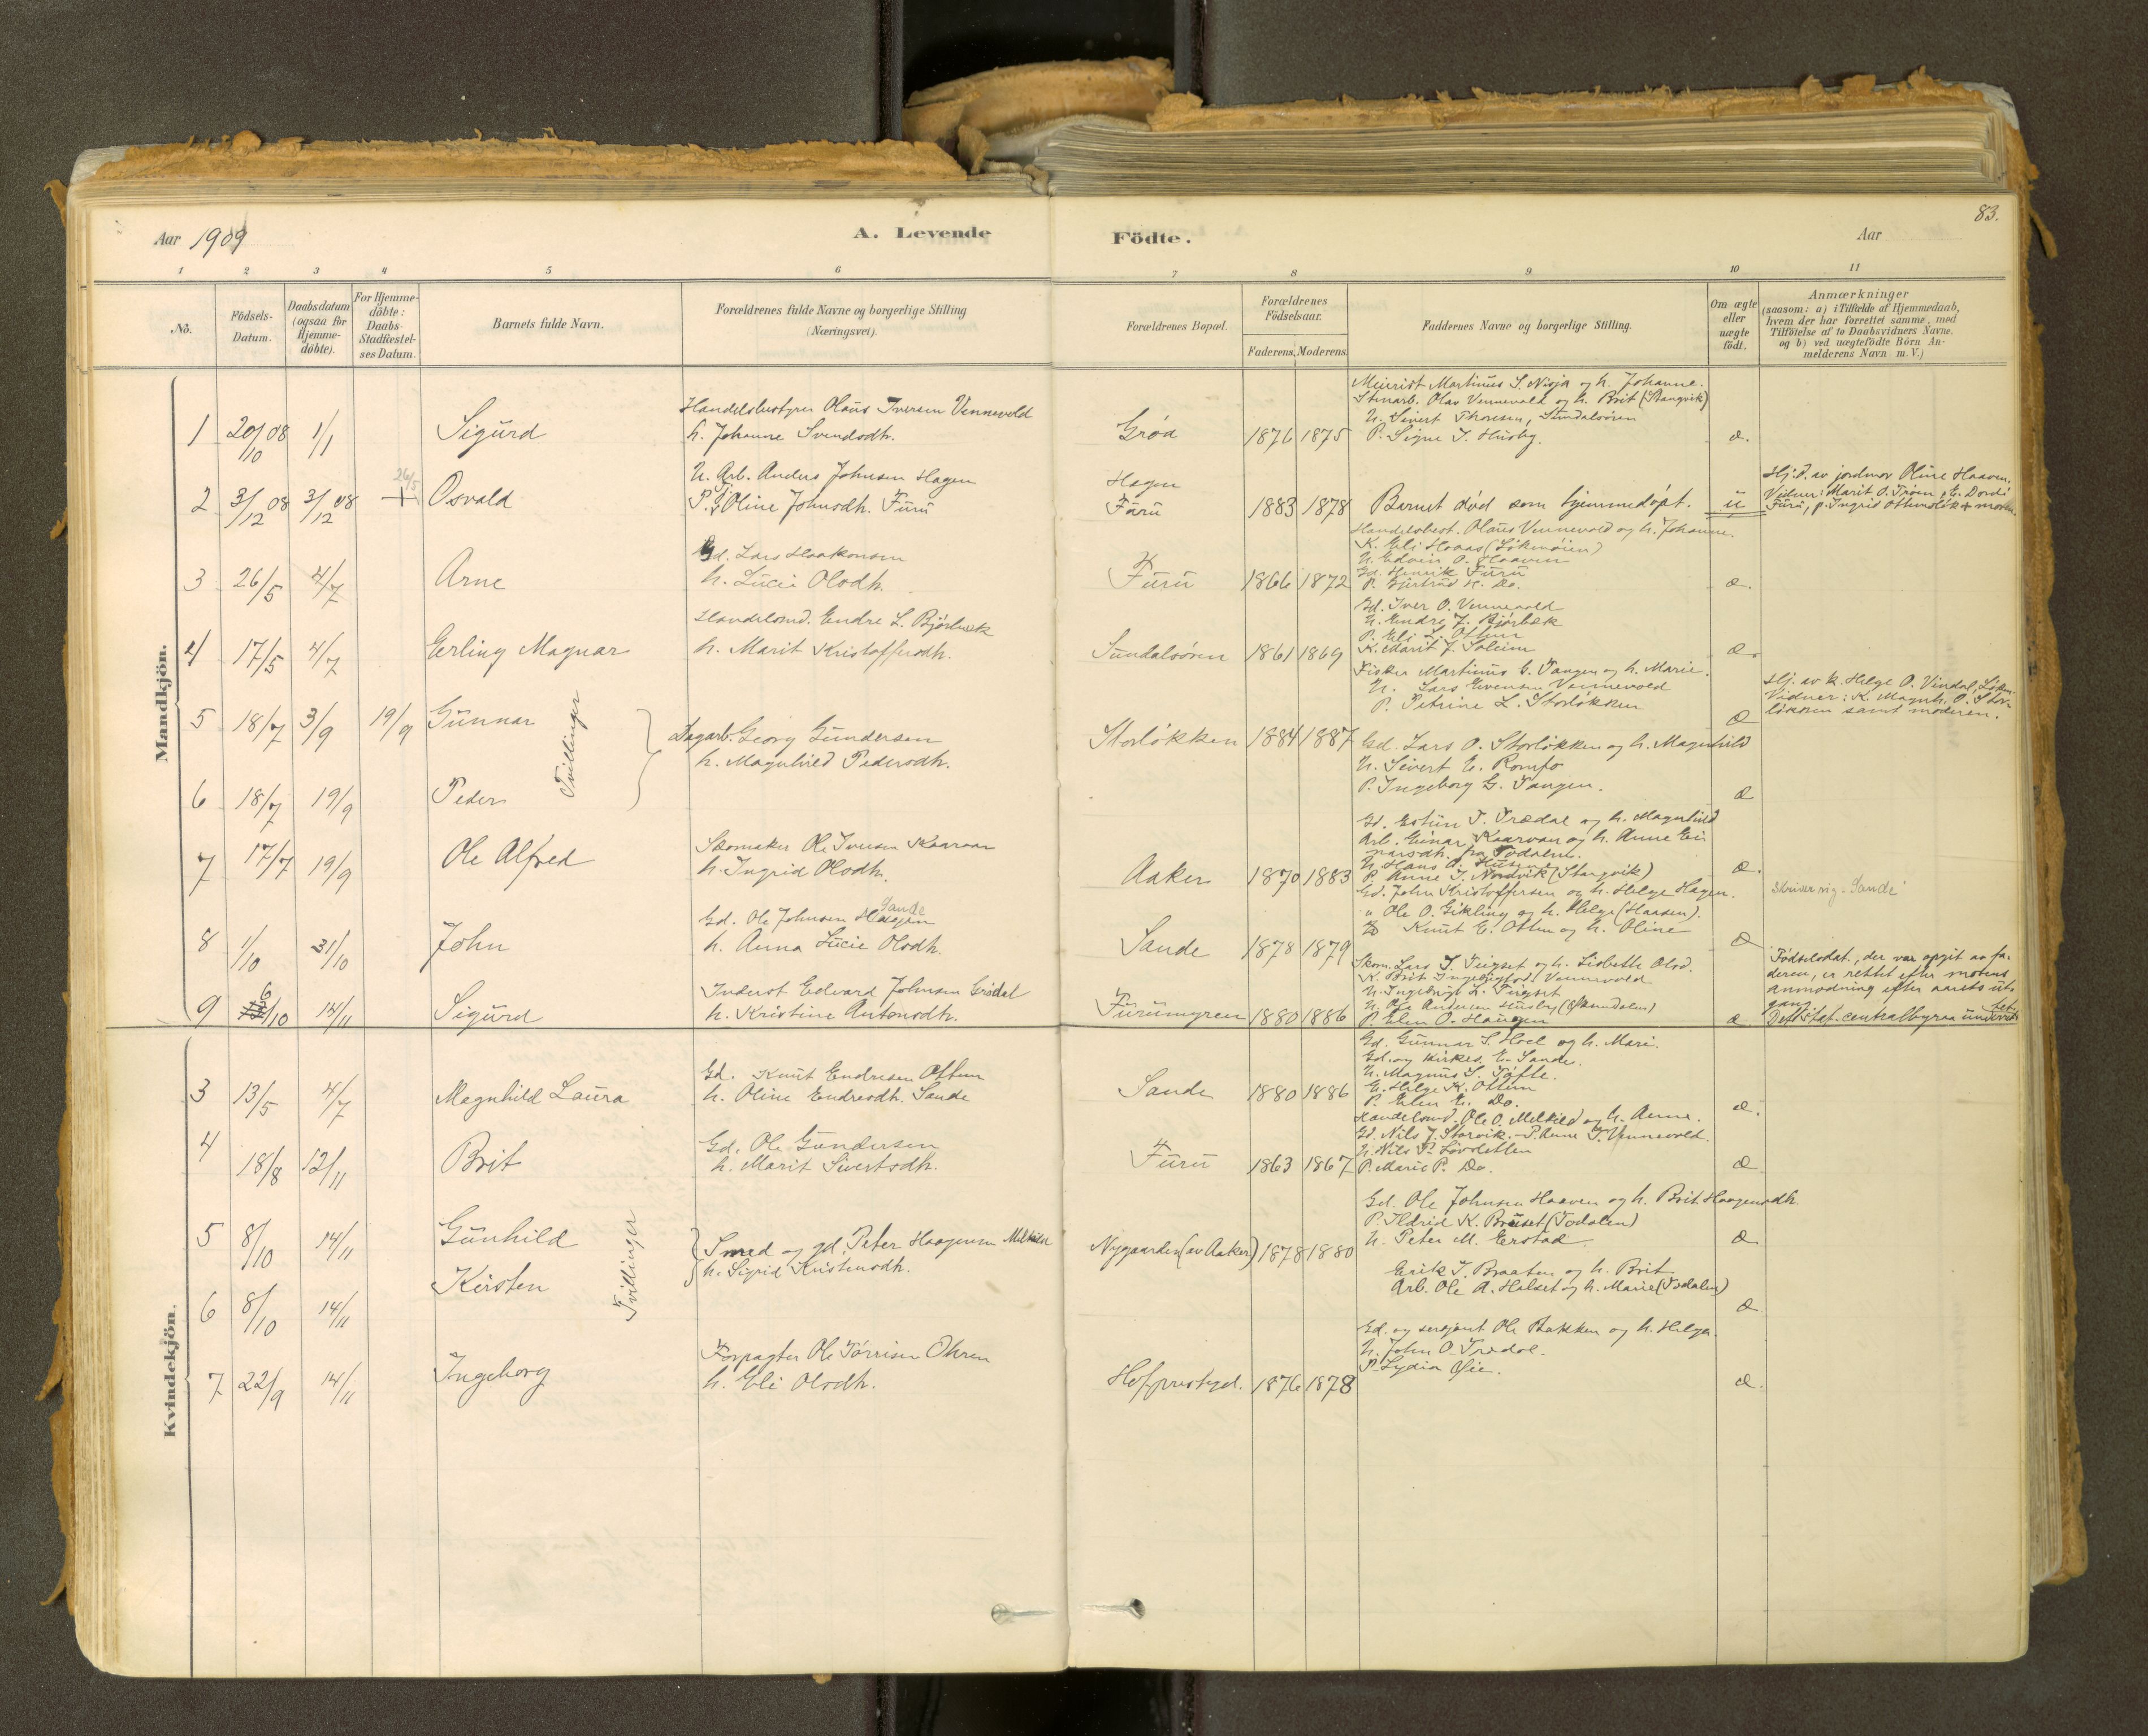 83.
Aar 1909
A. Levende Födte.
Aar
1 2 3 4 5 6 7 8 9 10 11
No.
Födsels-
Datum.
Daabsdatum
(ogsaa for
Hjemme-
döbte).
For Hjemme-
döbte:
Daabs-
Stadfæstel-
ses Datum.
Barnets fulde Navn.
Forældrenes fulde Navne og borgerlige Stilling
(Næringsvei).
Forældrenes Bopæl.
Forældrenes
Födselsaar.
Faderens. Moderens.
Faddernes Navne og borgerlige Stilling.
Om ægte
eller
uægte
födt.
Anmærkninger
(saasom: a) i Tilfælde af Hjemmedaab,
hvem der har forrettet samme, med
Tilföielse af to Daabsvidners Navne.
og b) ved uægtefödte Börn An-
melderens Navn m. V.)
Mandkjön.
1 20/10 08 1/1 Sigurd
Handelsbestyrer Olaus Iversen Vennevold
h. Johanne Svendsdh.
Grøa 1876 1875
Meierist Martinus S. Nisja og h. Johanne.
Stenarb. Olav Vennevold og h. Brit (Stangvik)
U. Sivert Thoresen, Sundalsören
P. Signe J. Husby.
æ.
2 3/12 08 3/12 08 26/5 + Osvald
U. Arb. Anders Johnsen Hagen
P. Tj. Oline Johnsdh. Furu
Hagen
Furu 1883 1878
Barnet död som hjemmedöpt.
u
Hj. d. av jordmor Oline Haaven.
Vidner: Marit O. Trøen, E. Dordi
Furu, p. Ingrid Ottemslök + moren.
3 26/5 4/7 Arne
Gd. Lars Haakonsen
h. Lucie Olsdh.
Furu 1866 1872
Handelsbest. Olaus Vennevold og h. Johanne.
K. Eli Hovas (Lökenöien)
U. Edvin O. Haaven
Gd. Henrik Furu
P. Gjertrud K. Do.
æ.
4 17/5 4/7 Erling Magnar
Handelsmd. Endre L. Bjørbæk
h. Marit Kristoffersdh.
Sundalsören 1861 1869
Gd. Iver O. Vennevold
U. Endre J. Bjørbæk
P. Eli L. Ottem
K. Marit J. Soleim
æ.
5 18/7 3/9 19/9 Gunnar
6 18/7 19/9 Peder
Tvillinger
Dagarb. Georg Gundersen
h. Magnhild Pedersdh.
Storløkken 1884 1887
Fisker Martinus G. Tangen og h. Marie.
U. Lars Evensen Vennevold
P. Petrine L. Storløkken
æ
Hj. av k. Helge O. Vindal, Løken
Vidner: K. Magnh. O. Stor-
løkken samt moderen.
Gd. Lars O. Storløkken og h. Magnhild
U. Sivert E. Romfo
P. Ingeborg G. Tangen.
æ
7 17/7 19/9 Ole Alfred
Skomaker Ole Iversen Kaarvan
h. Ingrid Olsdh.
Aaker 1870 1883
Gd. Esten T. Trædal og h. Magnhild
Arb. Einar Kaarvan og h. Anne Ei-
narsdh. fra Todalen.
P. Anne J. Nordvik (Stangvik)
æ.
8 1/10 31/10 John
Gd. Ole Johnsen Haagen Sande
h. Anna Lucie Olsdh.
Sande 1878 1879
Gd. John Kristoffersen og h. Helge Hagen.
" Ole O. Gikling og h. Helge (Hansen).
Knut E. Ottem og h. Oline
æ
Skriver sig "Sande"
9 6/10 14/11 Sigurd
Inderst Edvard Johnsen Grødal
h. Kristine Antonsdh.
Furumyren 1880 1886
Skom. Lars J. Furset og h. Lisbeth Olsd.
K. Brit Ingebrigtsd. Vennevold
U. Ingebrigt L. Furset
U. Ole Andersen Husby
P. Elen O. Haugen
æ
Födselsdat., der var opgit av fa-
deren, er rettet efter morens
anmodning efter aarets ut-
gang.
Det stat. centralbyraa underrettet
Kvindekjön.
3 13/5 4/7 Magnhild Laura
Gd. Knut Endresen Ottem
h. Oline Endresdh. Sande
Sande 1880 1886
Gd. Gunnar S. Hoel og h. Mari.
Gd. og kirkes. E. Sande.
U. Magnus S. Tøfte.
E. Helge K. Ottem
P. Elen E. Do.
æ.
4 18/8 12/11 Brit
Gd. Ole Gundersen
h. Marit Sivertsdh.
Furu 1863 1867
Handelsmd. Ole O. Melkild og h. Anne.
Gd. Nils J. Storvik. P. Anne J. Vennevold.
U. Nils P. Løvsletten
P. Marie P. Do.
æ
5 8/10 14/11 Gunhild
6 8/10 14/11 Kirsten
Tvillinger
Smed og gd. Peter Haagensen Melkild
h. Sigrid Kristensdh.
Nygaarden (av Aaker) 1878 1880
Gd. Ole Johnsen Haaven og h. Brit Haagensdh.
P. Ildrid K. Bruset (Todalen)
U. Peter M. Erstad
æ
Erik T. Braaten og h. Brit
Arb. Ole A. Halset og h. Marie (Todalen)
æ
7 22/9 14/11 Ingeborg
Forpagter Ole Tørrisen Ohren
h. Eli Olsdh.
Hofprestegd. 1876 1878
Gd. og sersjant Ole Bakken og h. Helga.
U. John O. Trædal.
P. Lydia Øie.
æ.